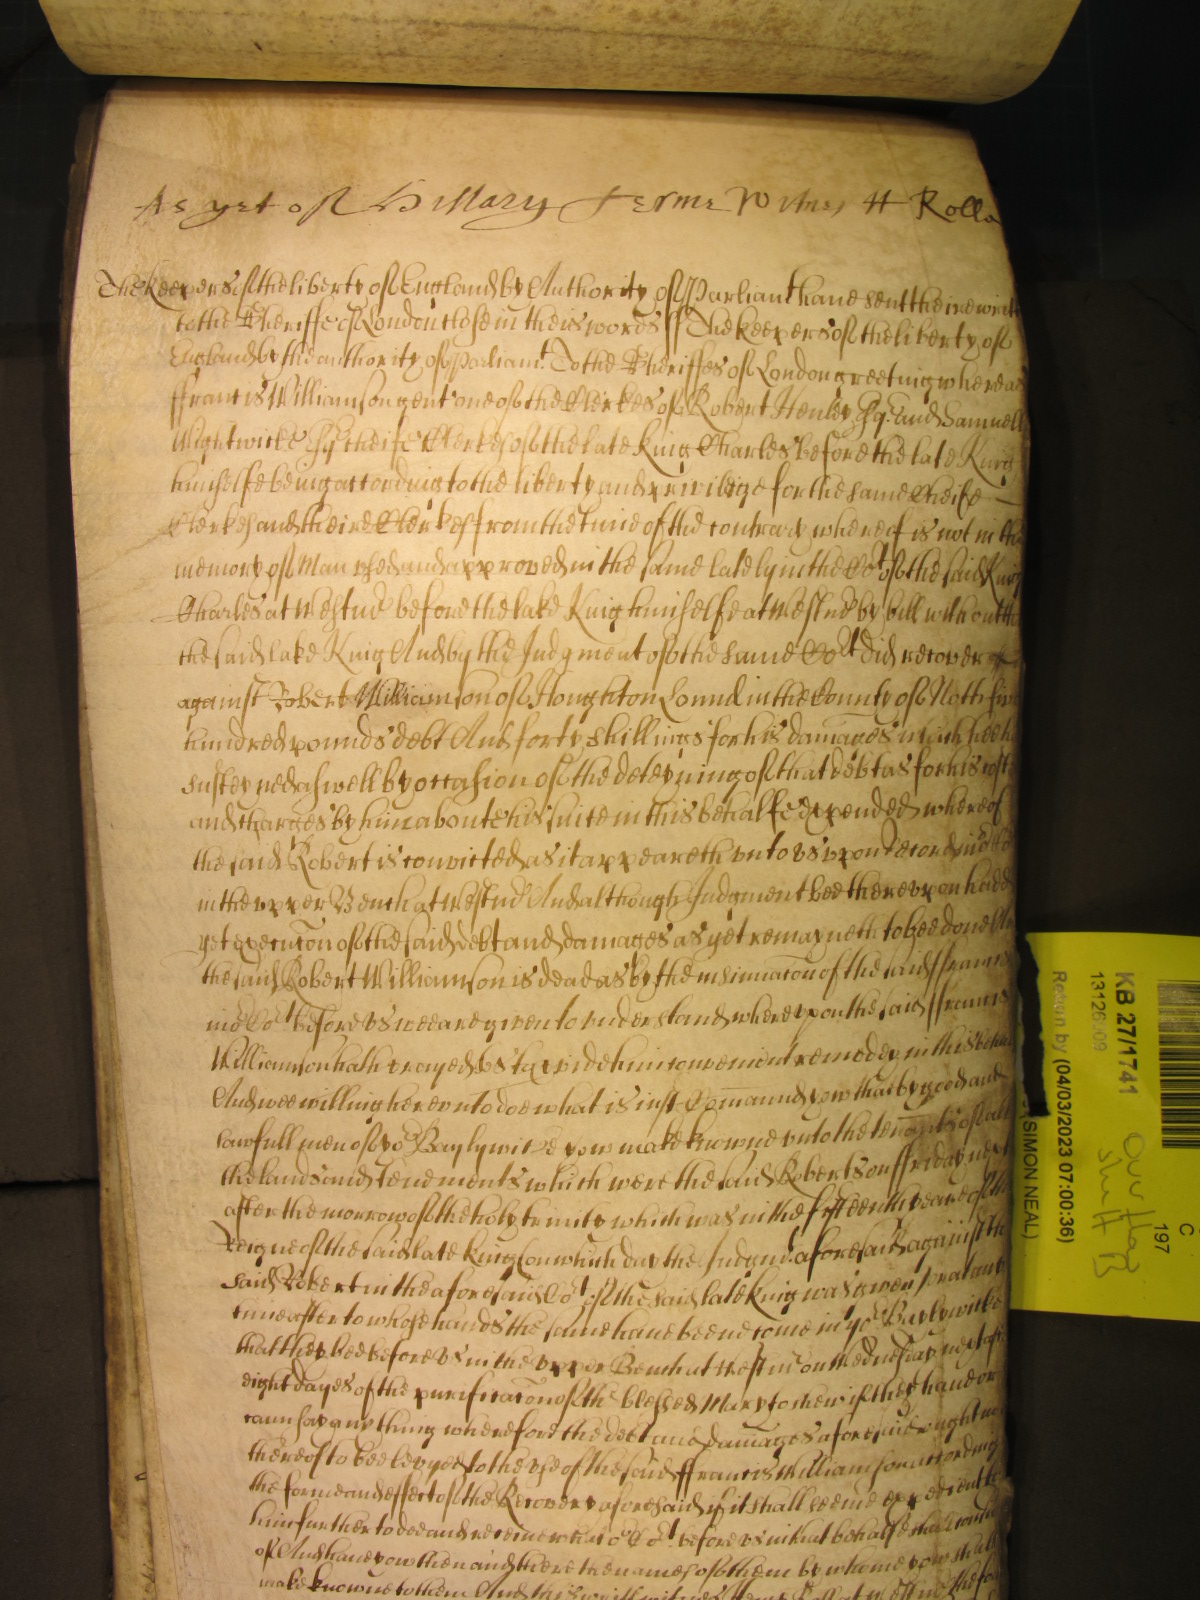 As yet of Hillary Terme Witnes H Rolle
The keepers of the liberty of England by Authority of Parliamt have sent theire writt
to the Sheriffe of London close in theis words ss The keepers of the liberty of
England by the authority of Parliamt. To the Sheriffes of London greeting whereas
ffrancis Williamson gent one of the Clerkes of Robert Henley Esq. And Samuell
Wightwicke Esq cheife Clerkes of the late King Charles before the late King
himselfe being according to the liberty and priviledge for the same Cheife
Clerkes and theire Clerkes from the time of the contrary whereof is not in the
memory of Man used and approved in the same lately in the Cot of the said King
Charles at Westmr before the late King himselfe at Westmr by bill without the
the said late King And by the Judgment of the same Cot did recover
against Robert Williamson of Houghton Lound in the County of Nottr five
hundred pounds debt And forty shillings for his damages which hee
susteyned aswell by occasion of the deteyning of that debt as for his costs
and charges by him aboute his suite in this behalfe expended whereof
the said Robert is convicted as it appeareth unto us upon Record
in the upper Bench at Westmr And although Judgment bee thereupon
yet execucon of the said debt and damages as yet remayneth to bee done
the said Robert Williamson is dead as by the insinuacon of the said ffrancis
in or Cot before us wee are given to understand whereupon the said ffrancis
Williamson hath prayed us to pvide him convenient remedy in this behalfe
And wee willing hereunto doe what is just Comaund yow that by good and
lawfull men of yor Baylywicke yow make knowne unto the tenants of all
the lands and tenements which were the said Roberts on ffriday next
after the morrow of the holy trinity which was in the fifteenth yeare of the
Reigne of the said late King on which day the Judgmt aforesaid against the
said Robert in the aforesaid Cot of the said late King was given or at any
time after to whose hands the same have beene come in yor Baylywicke
that they bee before us in the upper Bench at Westmr on Wednesday next after
eight dayes of the purificacon of the blessed Mary to shew if they have or
can say any thing wherefore the debt and damages aforesaid ought not
thereof to bee levyed to the use of the said ffrancis Williamson according
the forme and effect of the Recovery aforesaid if it shall seeme expedient
him further to doe and receive what or Cot before us in that behalfe shall
of And have yow then and there the names of them by whome yow shall
make knowne to them And this writt witnes